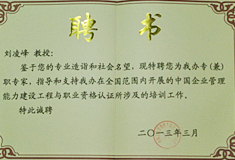 聘 书
刘凌峰 教授：
鉴于您的专业造诣和社会名望，现特聘您为我办专(兼)
职专家，指导和支持我办在全国范围内开展的中国企业管理
能力建设工程与职业资格认证所涉及的培训工作。
特此诚聘
二〇一三年三月